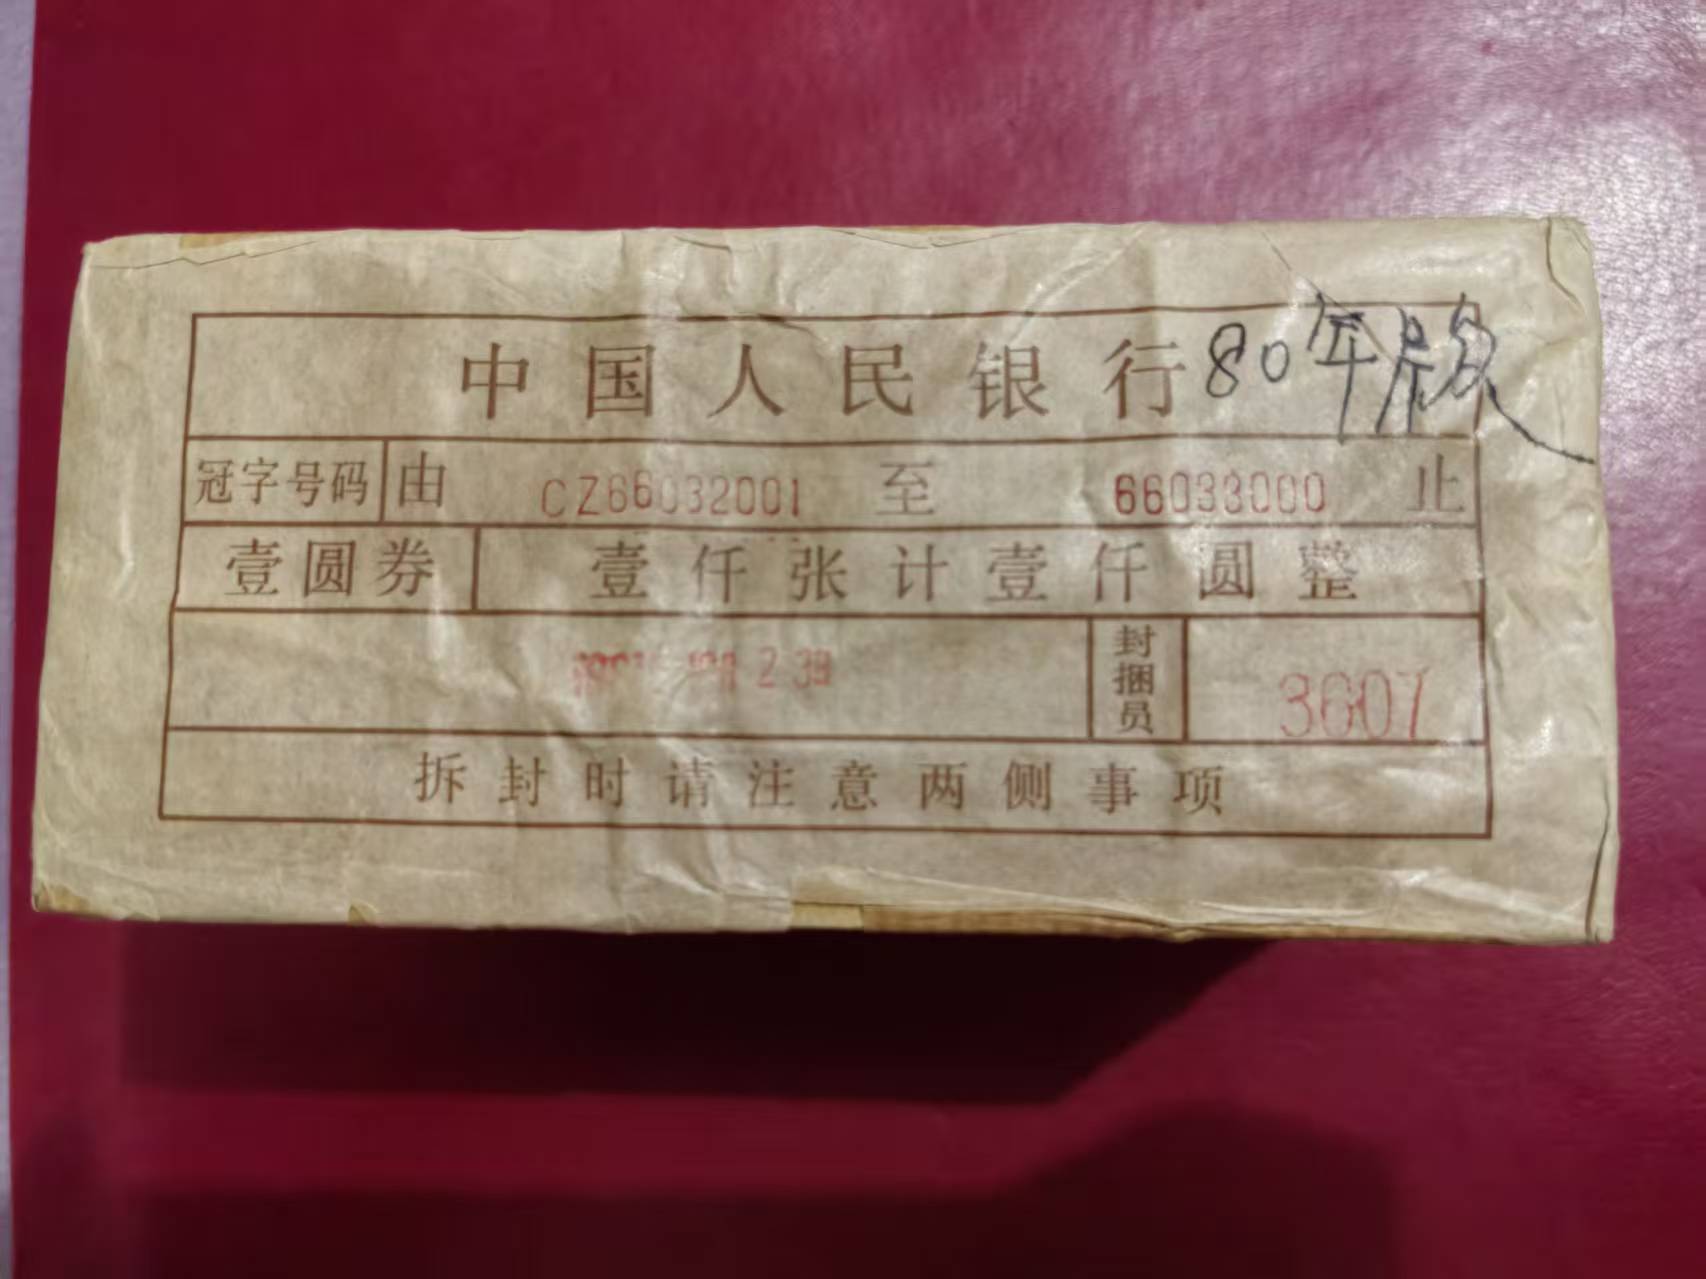 中国人民银行 80年版
冠字号码 由 CZ66032001 至 66033000 止
壹圆券 壹仟张计壹仟圆整
2 39 封捆员 3607
拆封时请注意两侧事项